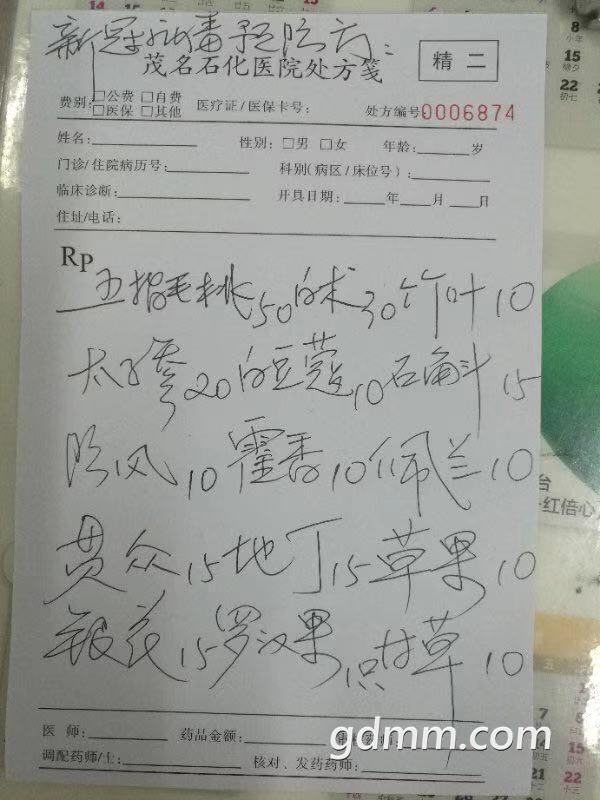 新冠状病毒预防方:
茂名石化医院处方笺
精二
费别: □公费 □自费 □医保 □其他 医疗证/医保卡号: 处方编号0006874
姓名: 性别: □男 □女 年龄: 岁
门诊/住院病历号: 科别(病区/床位号):
临床诊断: 开具日期: 年 月 日
住址/电话:
Rp
五指毛桃50 白术30 竹叶10
太子参20 白豆蔻10 石斛15
防风10 霍香10 佩兰10
贯众15 地丁15 草果10
银花15 罗汉果1只 甘草10
医师: 药品金额:
调配药师/士: 核对、发药药师:
gdmm.com
台
红倍心
14
8
小年
15
22
初七
7
14
15
22